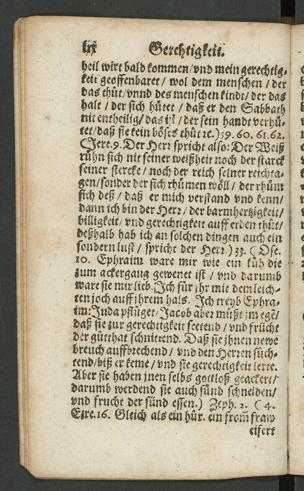 lxx Gerechtigkeit.
heil wirt bald kommen/vnd mein gerechtig-
keit geoffenbaret / wol dem menschen / der
das thüt/vnnd des menschen kindt/der das
halt / der sich hütet / daß er den Sabbath
nit entheilig/das ist / der sein handt verhü-
tet/daß sie kein böses thüt ꝛc.);9.60.61.62.
(Jere.9. Der Herr spricht also: Der Weiß
rühm sich nit seiner weißheit noch der starck
seiner stercke/noch der reich seiner reichta-
gen/sonder der sich rhümen wöll/der rhüm
sich deß / daß er mich verstand vnd kenn/
dann ich bin der Herr/der barmhertzigkeit/
billigkeit/vnd gerechtigkeit auff erden thüt/
deßhalb hab ich an solchen dingen auch ein
sondern lust / spricht der Herr) 33. (Ose.
10. Ephraim ware mir wie ein küh die
zum ackergang gewenet ist / vnd darumb
ware sie mir lieb. Ich für jhr mit dem leich-
ten joch auff jhrem hals. Ich reyb Ephra-
im: Juda pflüget/Jacob aber müßt
daß sie zur gerechtigkeit seetend / vnd frücht
der güthat schnittend. Daß sie jhnen newe
breuch auffbrechend / vnd den Herren süch-
tend/biß er keme / vnd sie gerechtigkeit lerte.
Aber sie haben jnen selbs gottloß geackert/
darumb werdend sie auch sünd schneiden/
vnd frucht der sünd essen.) Zeph. 2. (4.
Esre.16. Gleich als ein hür. ein from fraw
eifert